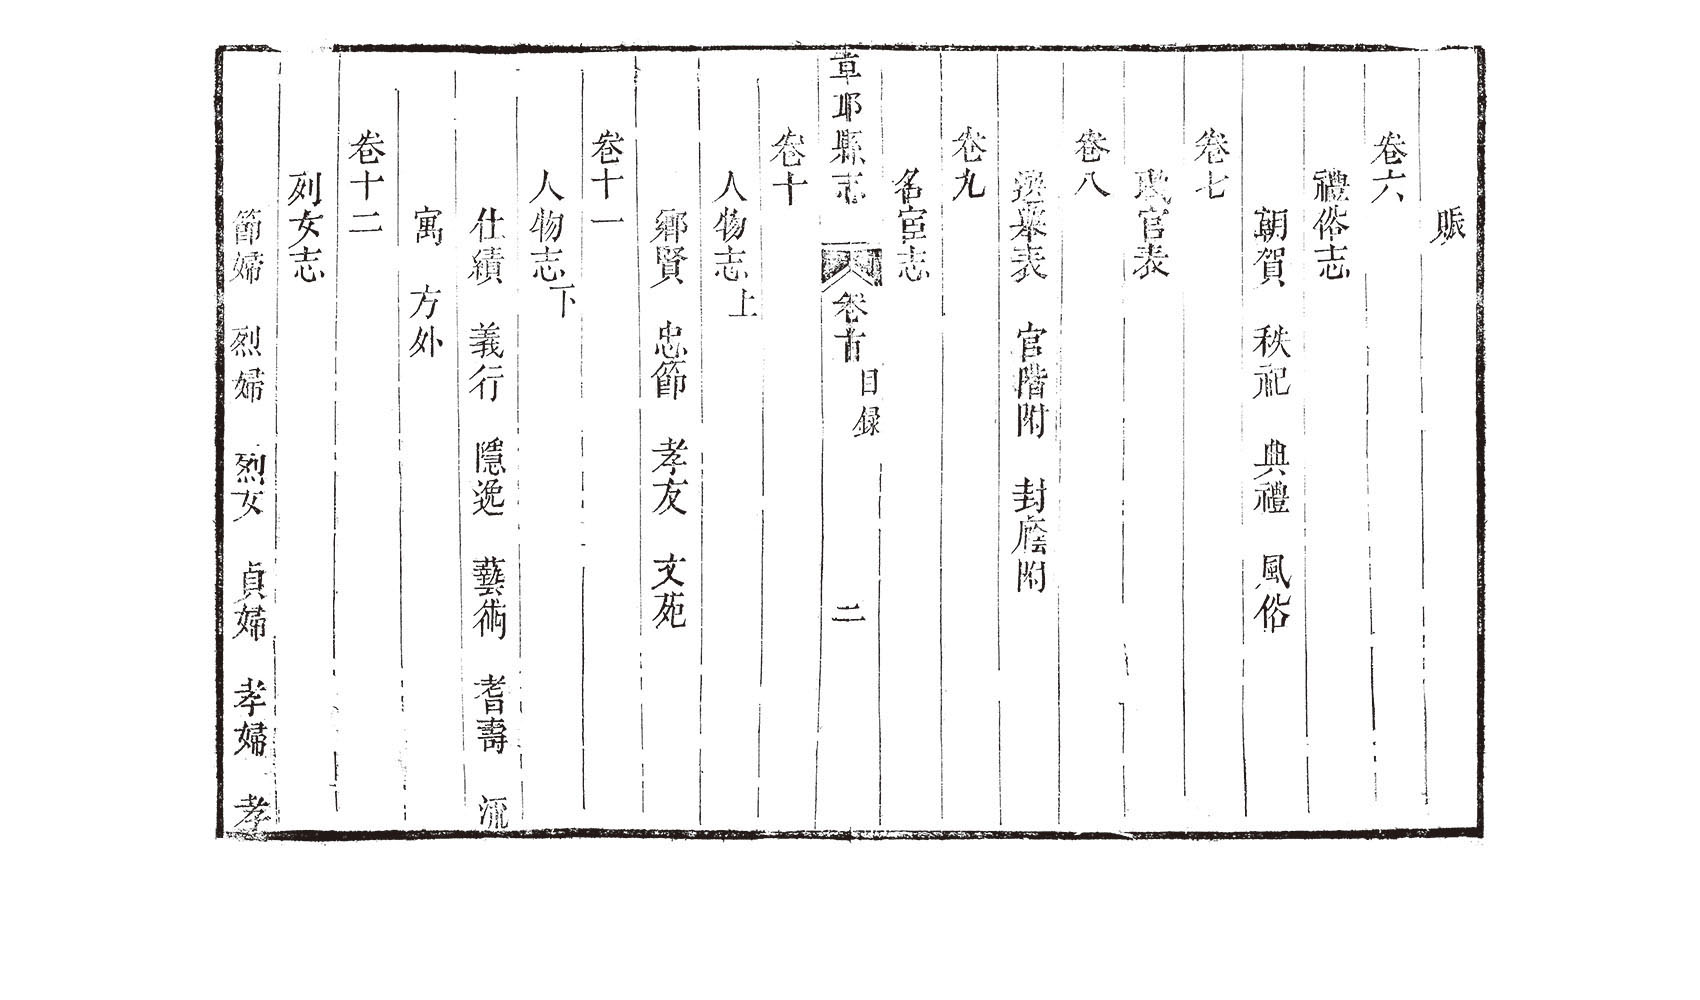 賑
卷六
禮俗志
朝賀　秩祀　典禮　風俗
卷七
職官表
卷八
選舉表　官階附　封廕附
卷九
名宦志
章邱縣志　卷首　目録　二
卷十
人物志上
鄉賢　忠節　孝友　文苑
卷十一
人物志下
仕績　義行　隱逸　藝術　耆壽　流
寓　方外
卷十二
列女志
節婦　烈婦　烈女　貞婦　孝婦　孝